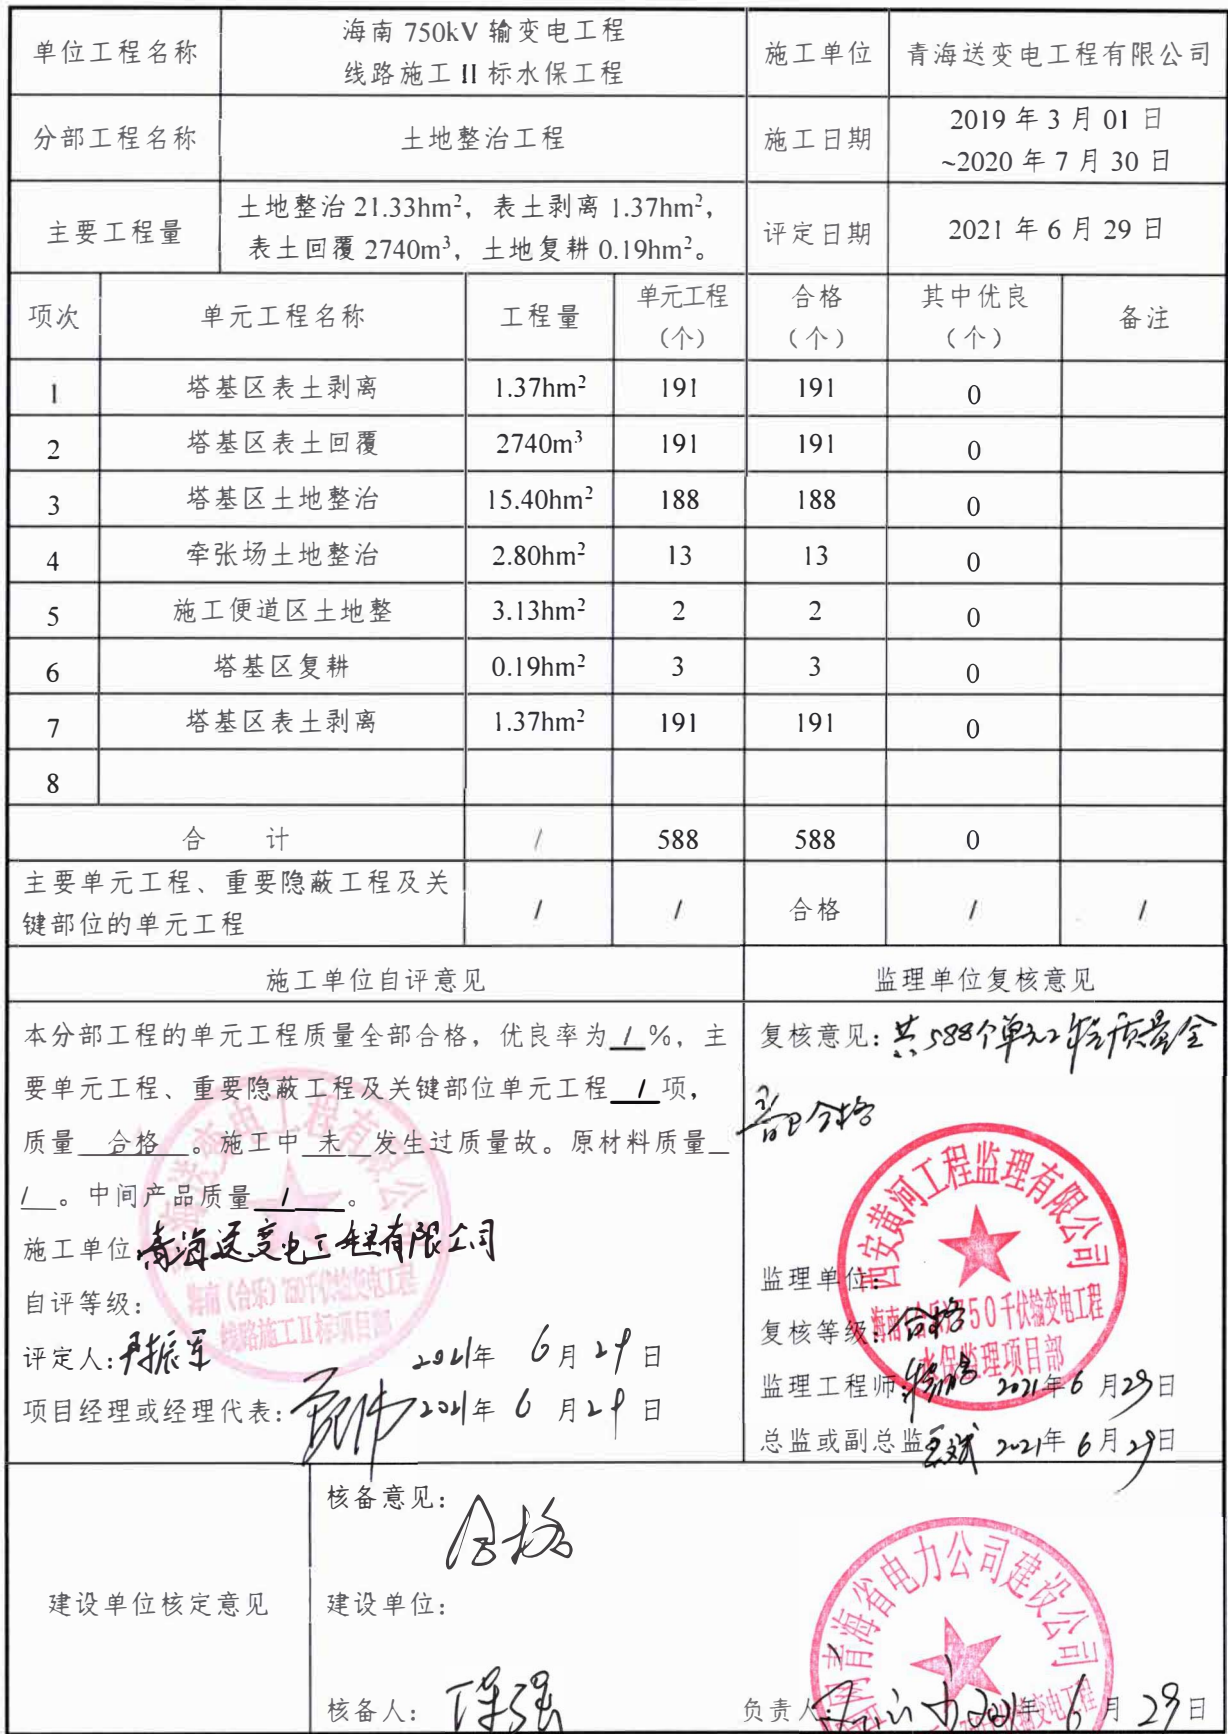 单位工程名称 海南 750kV 输变电工程 线路施工 II 标水保工程 施工单位 青海送变电工程有限公司
分部工程名称 土地整治工程 施工日期 2019 年 3 月 01 日 ~2020 年 7 月 30 日
主要工程量 土地整治 21.33hm²，表土剥离 1.37hm²， 表土回覆 2740m³，土地复耕 0.19hm²。 评定日期 2021 年 6 月 29 日
项次 单元工程名称 工程量 单元工程（个） 合格（个） 其中优良（个） 备注
1 塔基区表土剥离 1.37hm² 191 191 0
2 塔基区表土回覆 2740m³ 191 191 0
3 塔基区土地整治 15.40hm² 188 188 0
4 牵张场土地整治 2.80hm² 13 13 0
5 施工便道区土地整 3.13hm² 2 2 0
6 塔基区复耕 0.19hm² 3 3 0
7 塔基区表土剥离 1.37hm² 191 191 0
8
合 计 / 588 588 0
主要单元工程、重要隐蔽工程及关键部位的单元工程 / / 合格 / /
施工单位自评意见 监理单位复核意见
本分部工程的单元工程质量全部合格，优良率为 / %，主
要单元工程、重要隐蔽工程及关键部位单元工程 / 项，
质量 合格 。施工中 未 发生过质量故。原材料质量
/ 。中间产品质量 / 。
施工单位 青海送变电工程有限公司
自评等级：
评定人：尹振军 2021年 6月29日
项目经理或经理代表： 2021年 6月29日
海南（合乐）750千伏输变电工程
线路施工II标项目部
复核意见：共588个单元工程质量全
部合格
西安黄河工程监理有限公司
监理单位：
海南（合乐）750千伏输变电工程
复核等级：合格
水保监理项目部
监理工程师 2021年6月29日
总监或副总监 2021年6月29日
建设单位核定意见
核备意见：
合格
建设单位：
国网青海省电力公司建设公司
核备人：
负责人 2021年6月29日